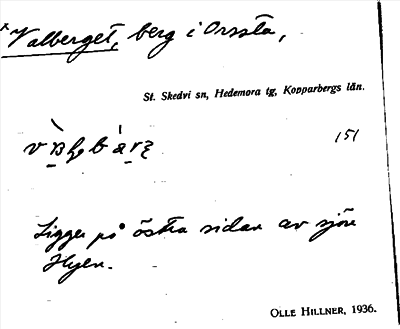 x Valberget, berg i Orsta,
St. Skedvi sn, Hedemora tg, Kopparbergs län.
151
Ligger på östra sidan av sjön
Hyen.
OLLE HILLNER, 1936.